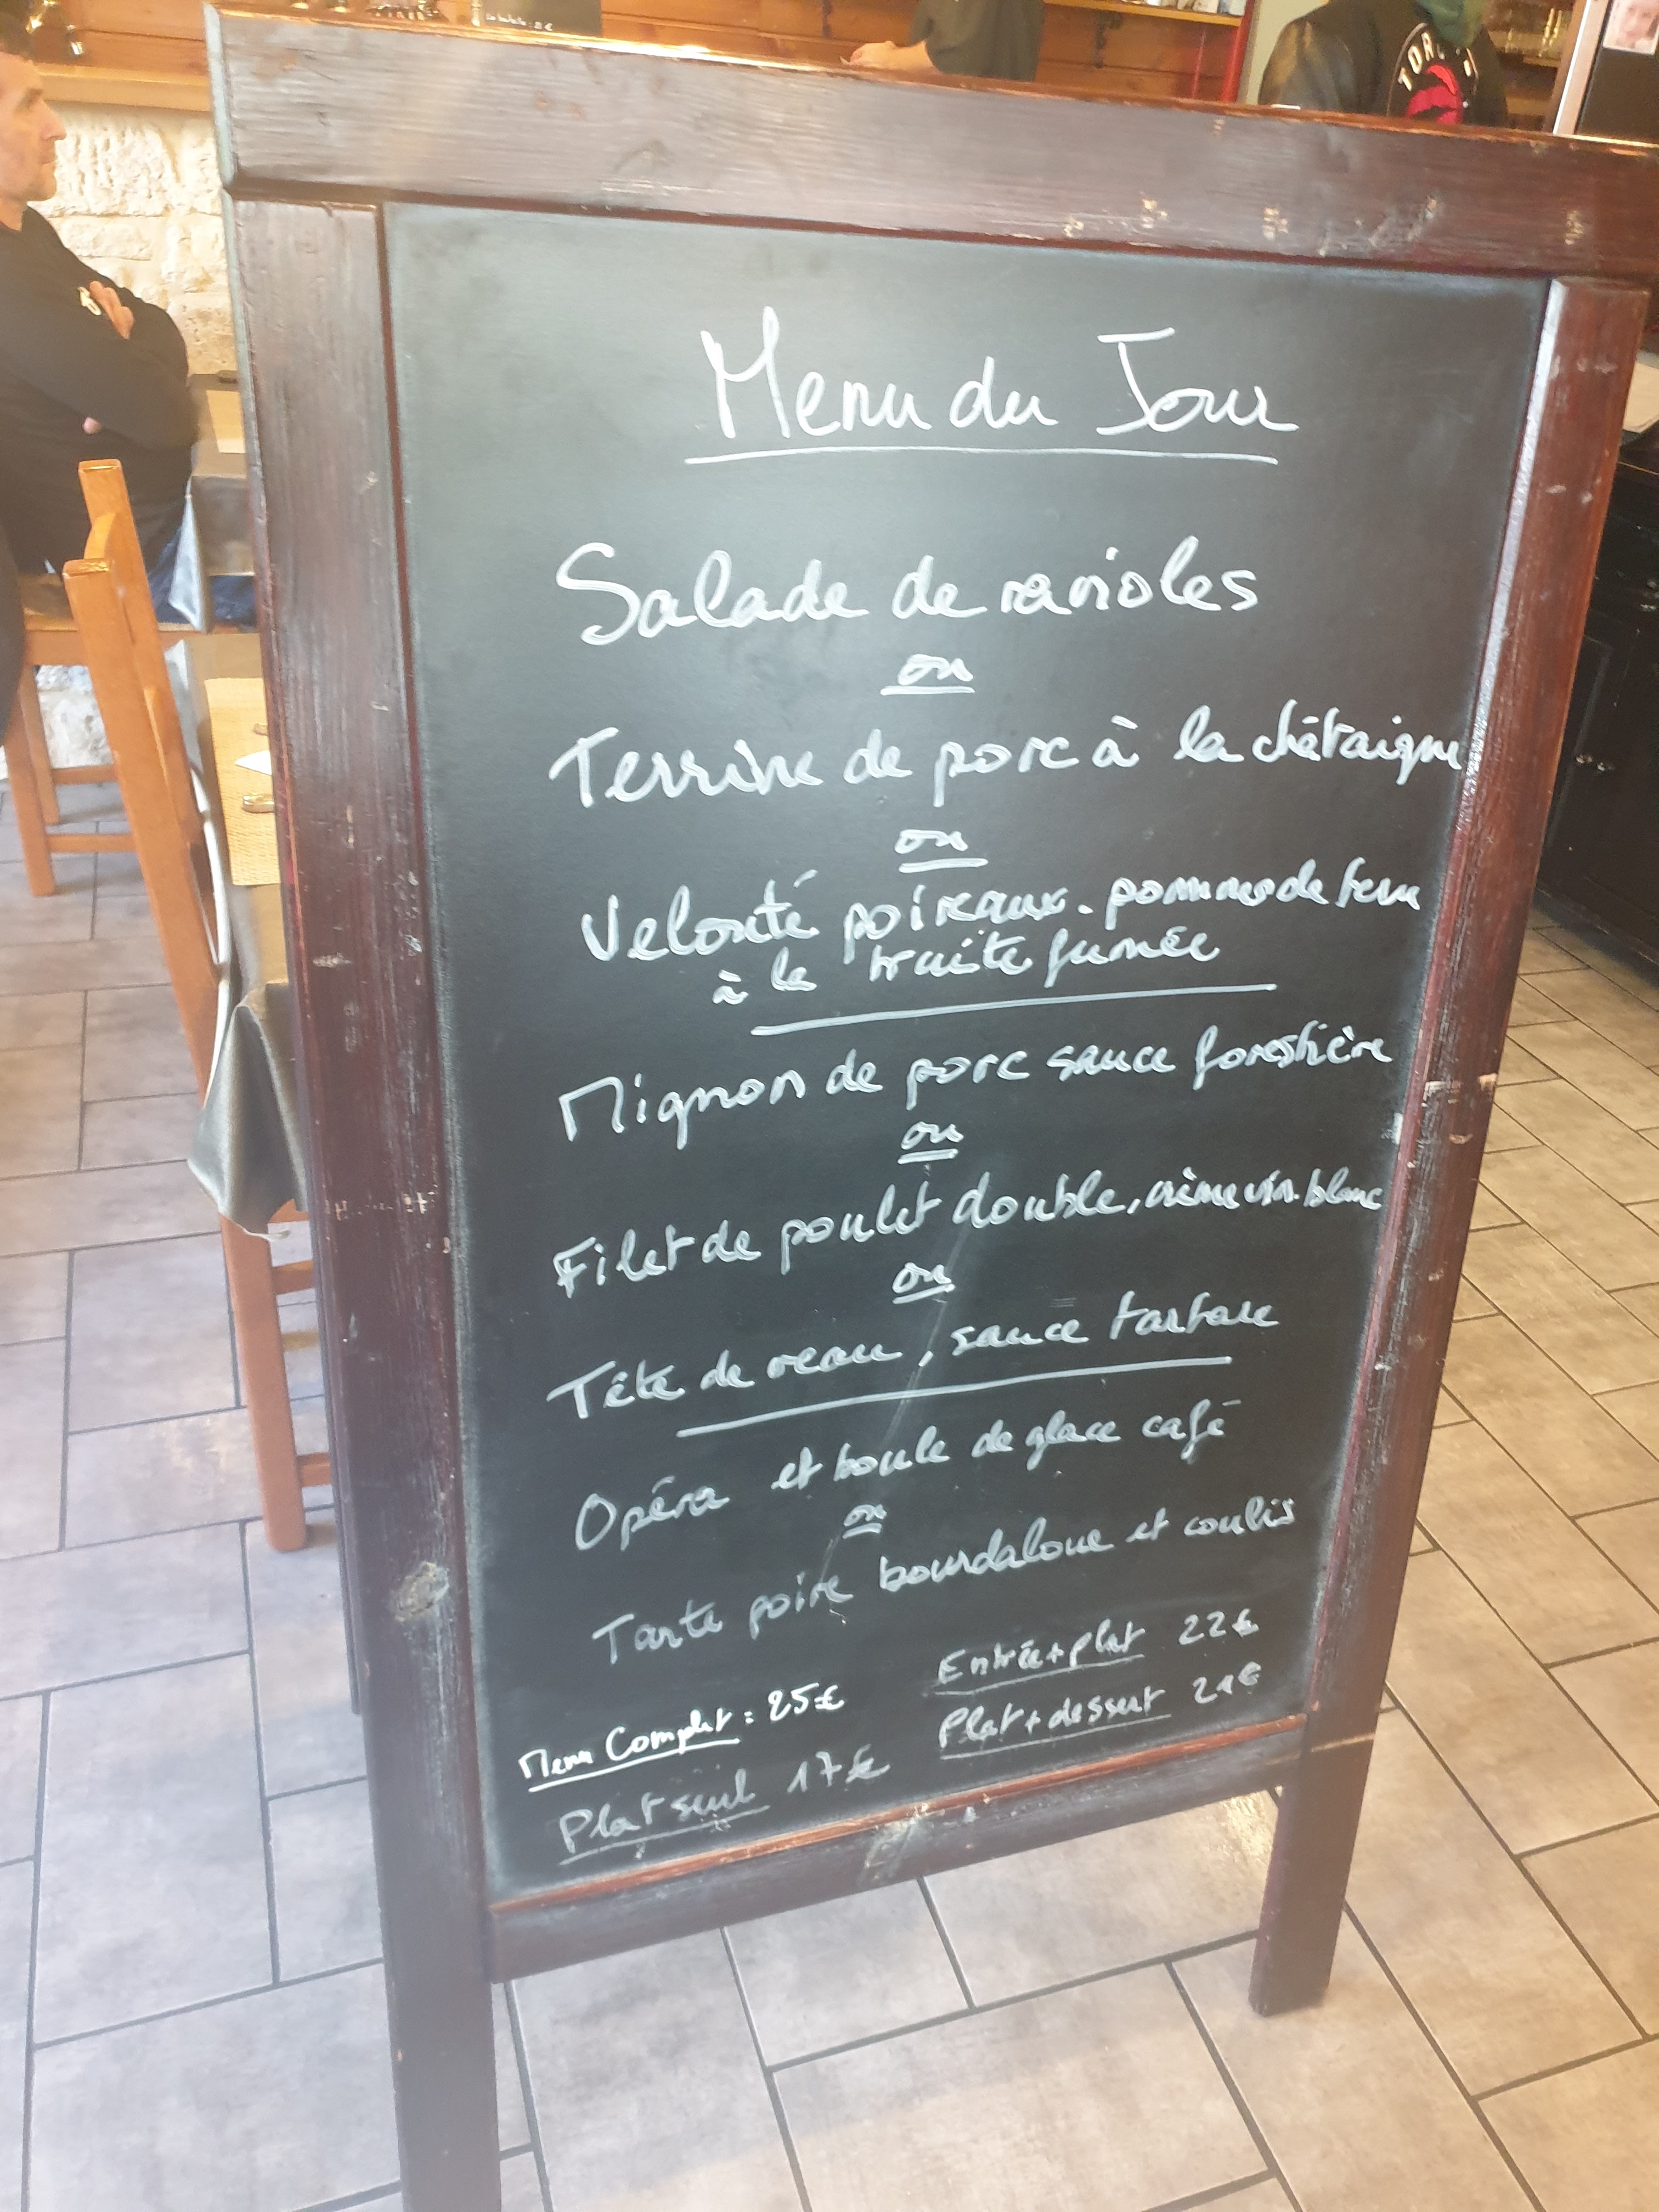 TORONTO
Menu du Jour
Salade de ravioles
ou
Terrine de porc à la châtaigne
ou
Velouté poireaux. pommes de terre
à la truite fumée
Mignon de porc sauce forestière
ou
Filet de poulet double, crème vin blanc
ou
Tête de veau, sauce tartare
Opéra et boule de glace café
ou
Tarte poire bourdaloue et coulis
Menu Complet = 25€
Plat seul 17€
Entrée + plat 22€
Plat + dessert 21€